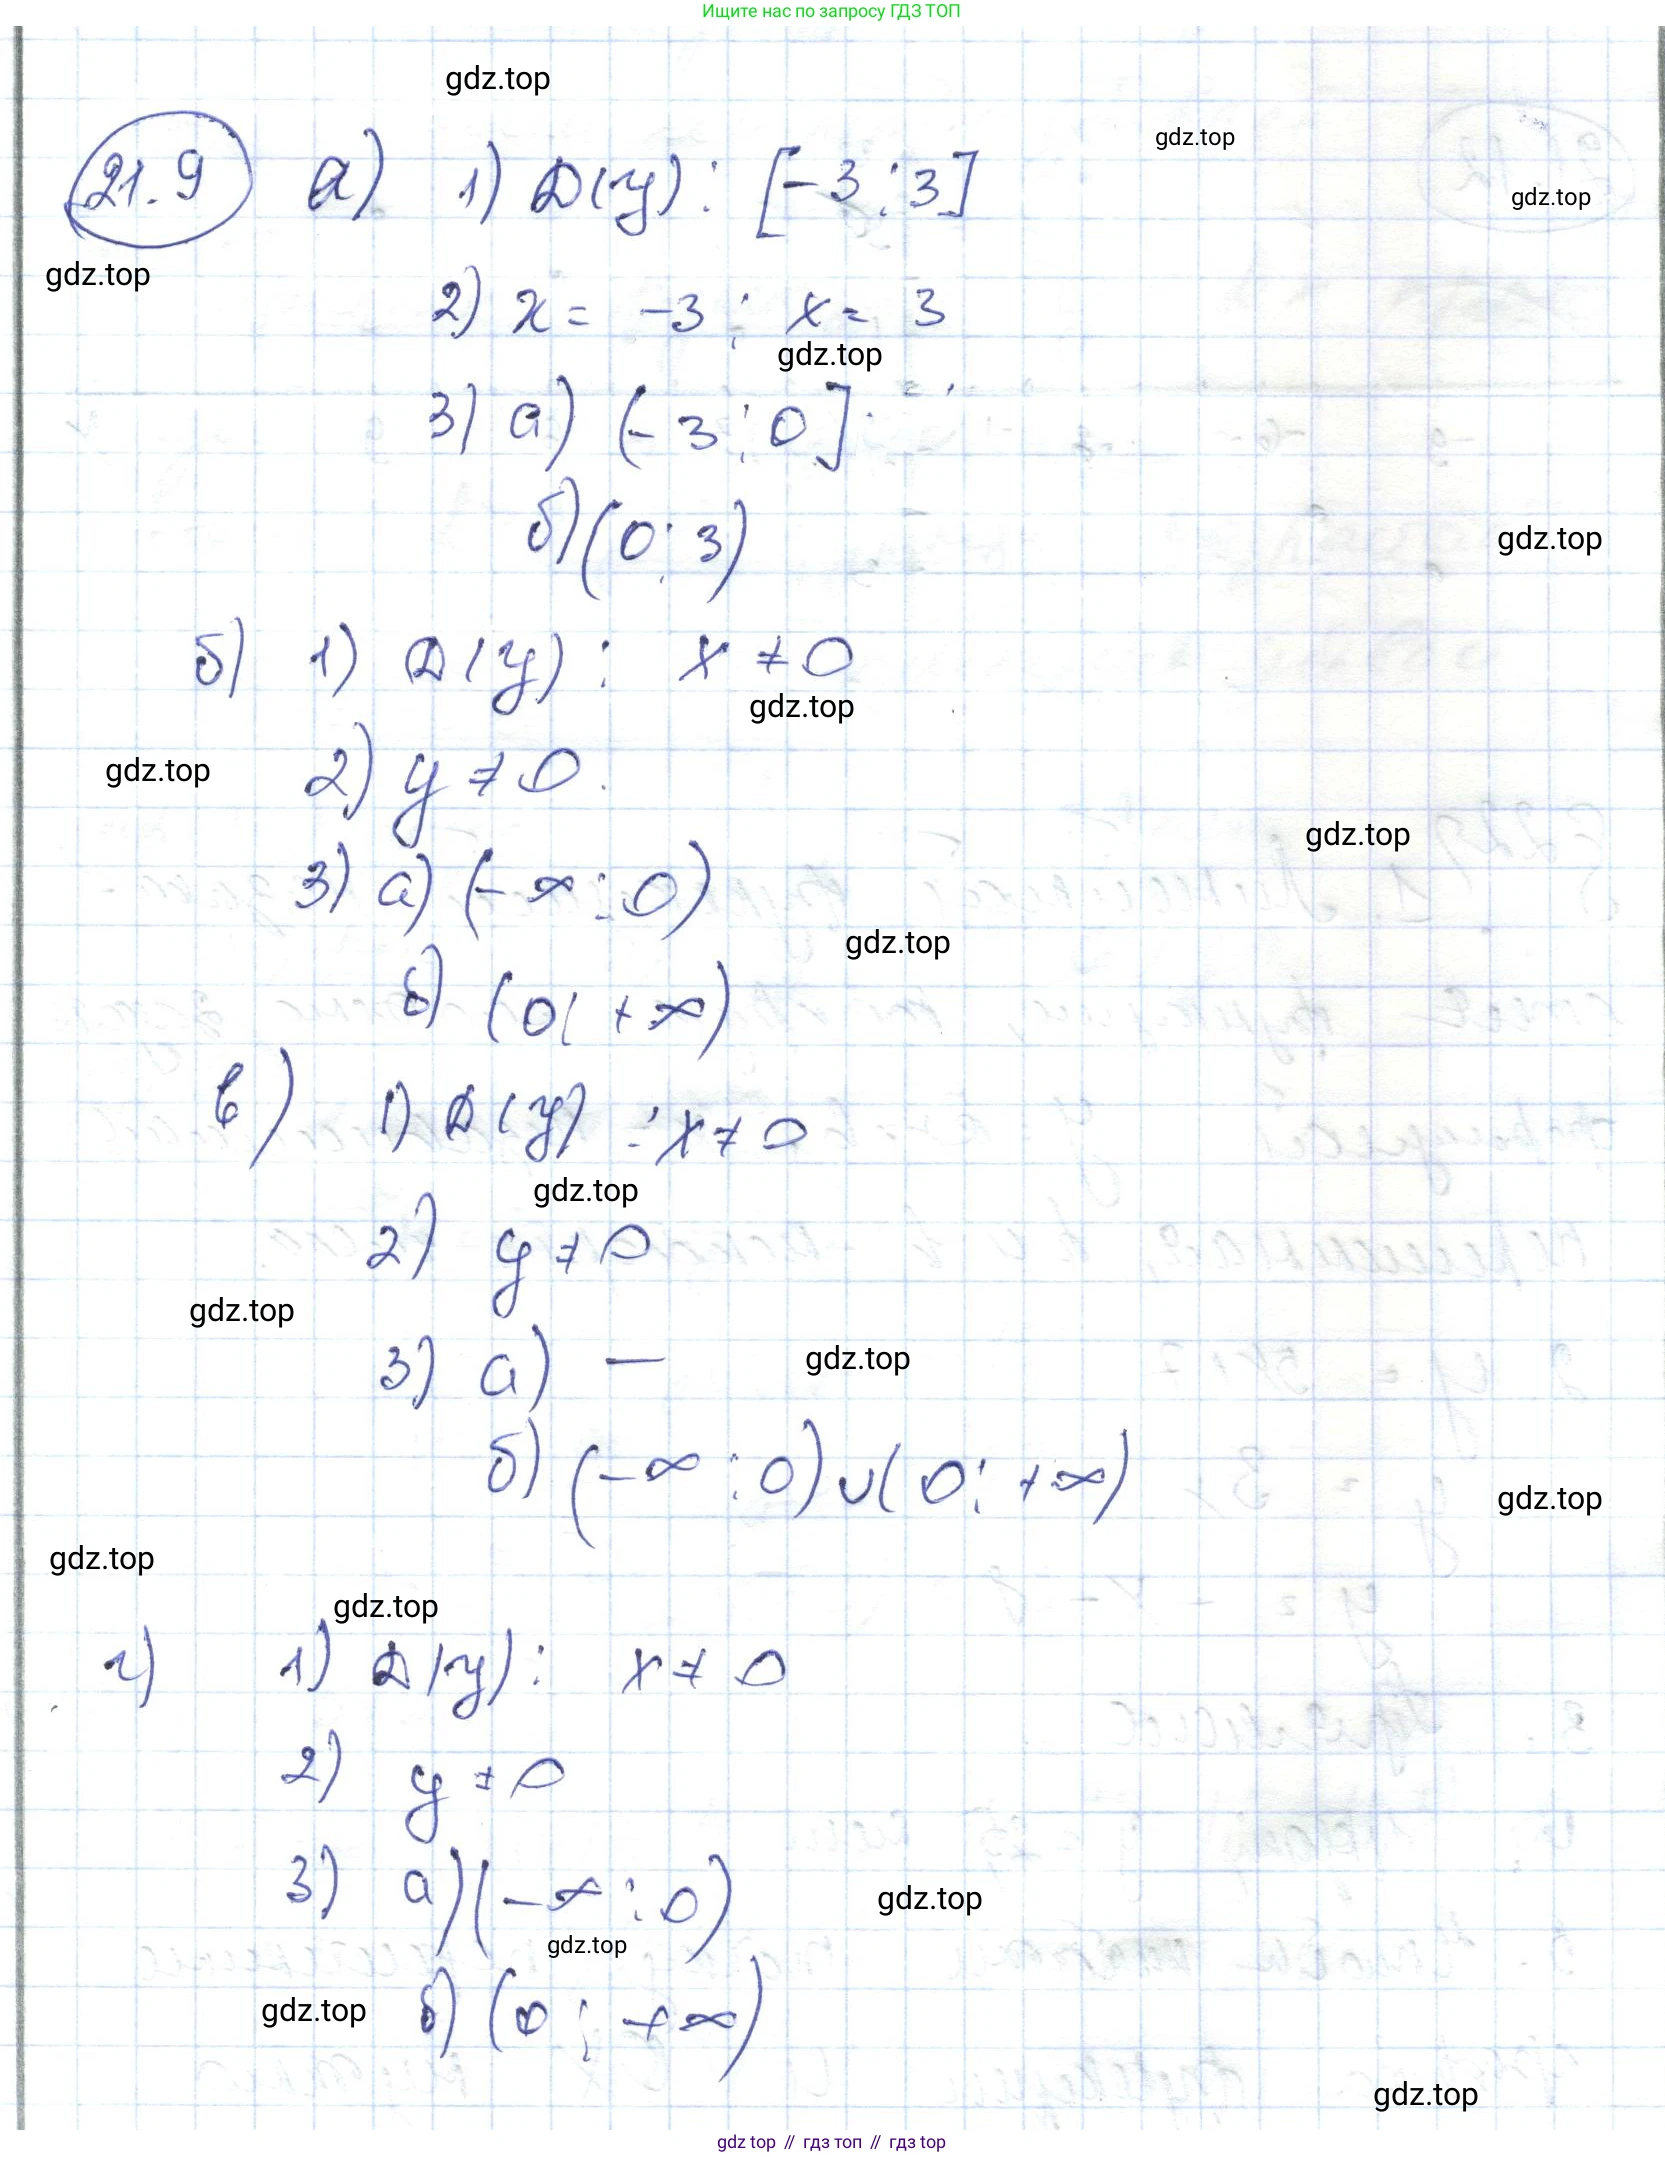 Ищите нас по запросу ГДЗ ТОП
gdz.top
gdz.top
21.9 а) 1) D(y): [-3; 3]
gdz.top
gdz.top
2) x = -3; x = 3
gdz.top
3) а) (-3; 0]
б) (0; 3)
gdz.top
б) 1) D(y): x ≠ 0
gdz.top
gdz.top
2) y ≠ 0.
gdz.top
3) а) (-∞; 0)
gdz.top
б) (0; +∞)
в) 1) D(y): x ≠ 0
gdz.top
2) y ≠ 0
gdz.top
3) а) —
gdz.top
б) (-∞; 0) ∪ (0; +∞)
gdz.top
gdz.top
gdz.top
г) 1) D(y): x ≠ 0
2) y ≠ 0
3) а) (-∞; 0)
gdz.top
gdz.top
gdz.top
б) (0; +∞)
gdz.top
gdz top // гдз топ // гдз top